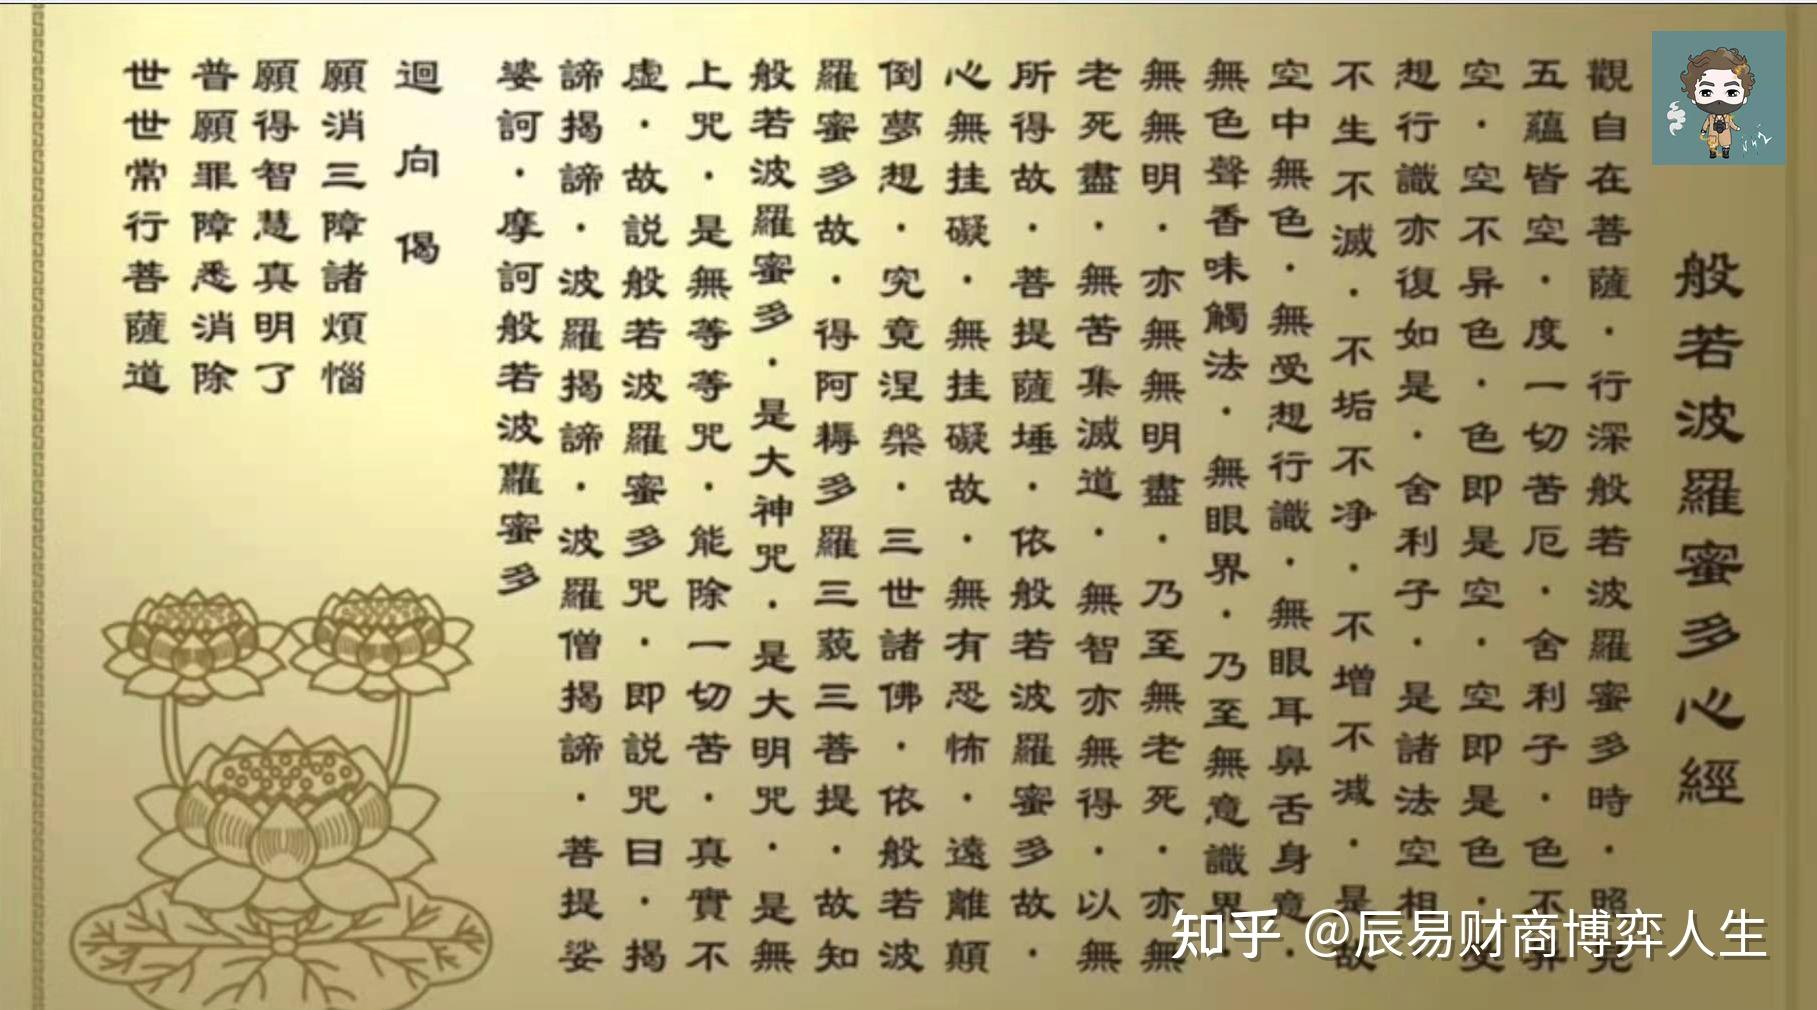 般若波羅蜜多心經
觀自在菩薩·行深般若波羅蜜多時·照見
五蘊皆空·度一切苦厄·舍利子·色不异
空·空不异色·色即是空·空即是色·受
想行識亦復如是·舍利子·是諸法空相·
不生不滅·不垢不净·不增不减·是故
空中無色·無受想行識·無眼耳鼻舌身意·
無色聲香味觸法·無眼界·乃至無意識界·
無無明·亦無無明盡·乃至無老死·亦無
老死盡·無苦集滅道·無智亦無得·以無
所得故·菩提薩埵·依般若波羅蜜多故·
心無挂礙·無挂礙故·無有恐怖·遠離顛
倒夢想·究竟涅槃·三世諸佛·依般若波
羅蜜多故·得阿耨多羅三藐三菩提·故知
般若波羅蜜多·是大神咒·是大明咒·是無
上咒·是無等等咒·能除一切苦·真實不
虚·故説般若波羅蜜多咒·即説咒曰·揭
諦揭諦·波羅揭諦·波羅僧揭諦·菩提娑
婆訶·摩訶般若波蘿蜜多
迴向偈
願消三障諸煩惱
願得智慧真明了
普願罪障悉消除
世世常行菩薩道
知乎 @辰易财商博弈人生